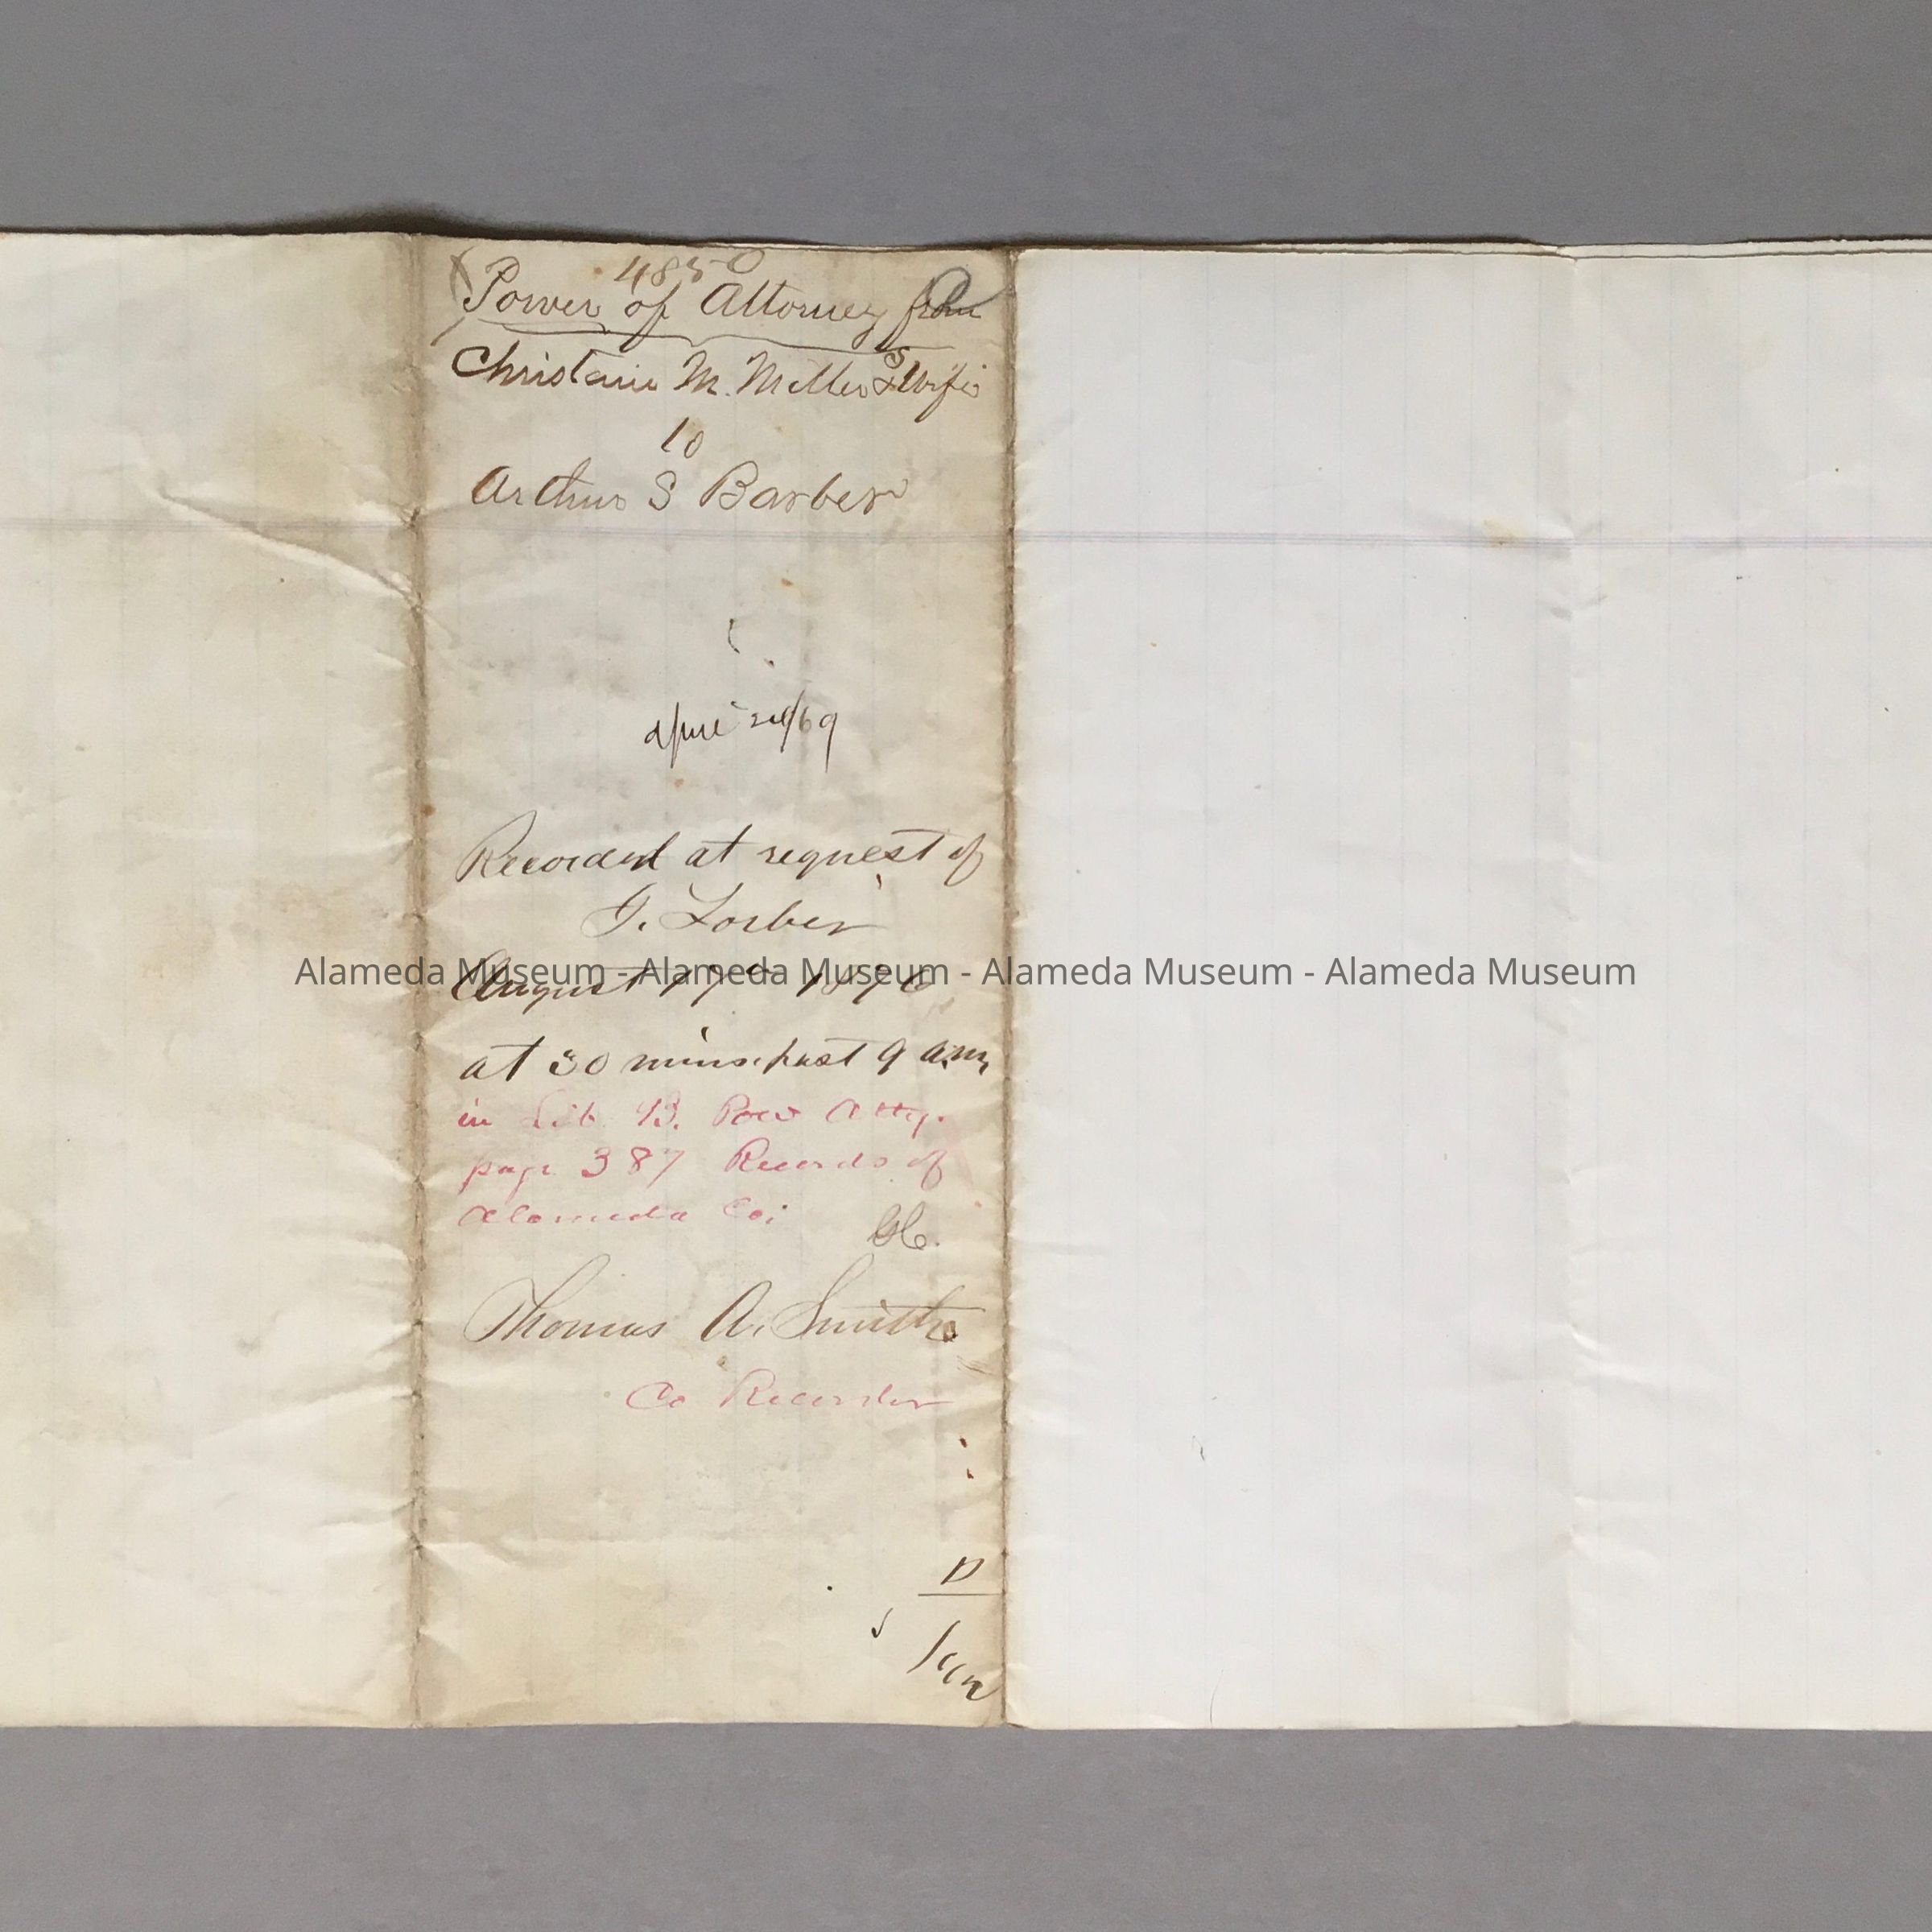 4850
Power of Attorney from
Christain M. Miller & Wife
to
Arthur S Barber
April 24/69
Recorded at request of
J. Lorber
Alameda Museum - Alameda Museum - Alameda Museum - Alameda Museum
August 17th 1870
at 30 mins. past 9 a.m,
in Lib. B. Pow Atty.
page 387 Records of
Alameda Co;
Thomas A. Smith
Co Recorder